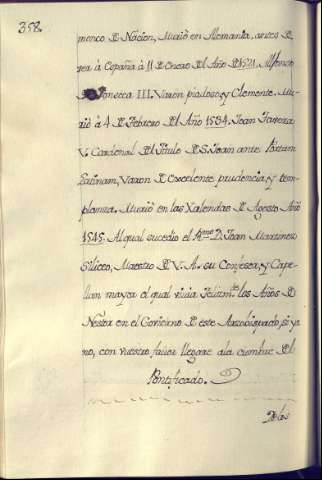 358.
menco de Nacion, Murió en Alemania, antes de
ver à España à 11 de Enero del Año de 1521. Alfonso
de Fonseca III. Varon piadoso, y Clemente. Mu-
rió à 4 de Febrero del Año 1534. Joan Tavera
V. Cardenal del titulo de S. Joan ante Portam
Latinam, Varon de Excelente prudencia, y tem-
planza. Murió en las Kalendas de Agosto Año
1545. Al qual sucedio el Rmo. D. Joan Martinez
Siliceo, Maestro de V. A. su Confesor, y Cape-
llan mayor el qual viva Felizmte. los Años de
Nestor en el Govierno de este Arzobispado, si ya
no, con vuestro favor llegare à la cumbre del
Pontificado.
De los